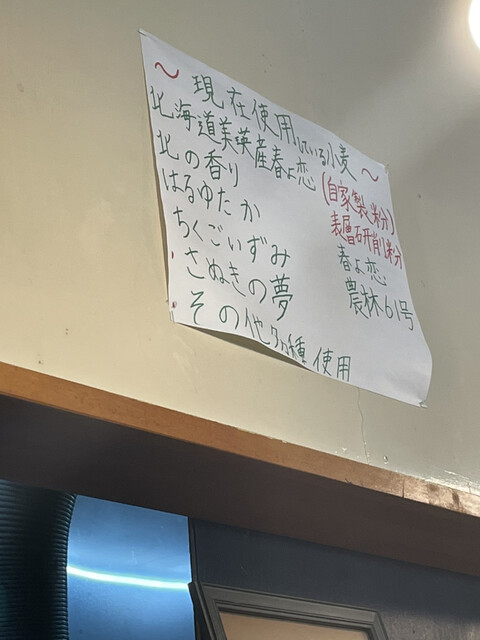 〜現在使用している小麦〜
北海道美瑛産春よ恋
北の香り
はるゆたか
ちくごいずみ
さぬきの夢
その他9種使用
(自家製粉)
表層研削粉
春よ恋
農林61号